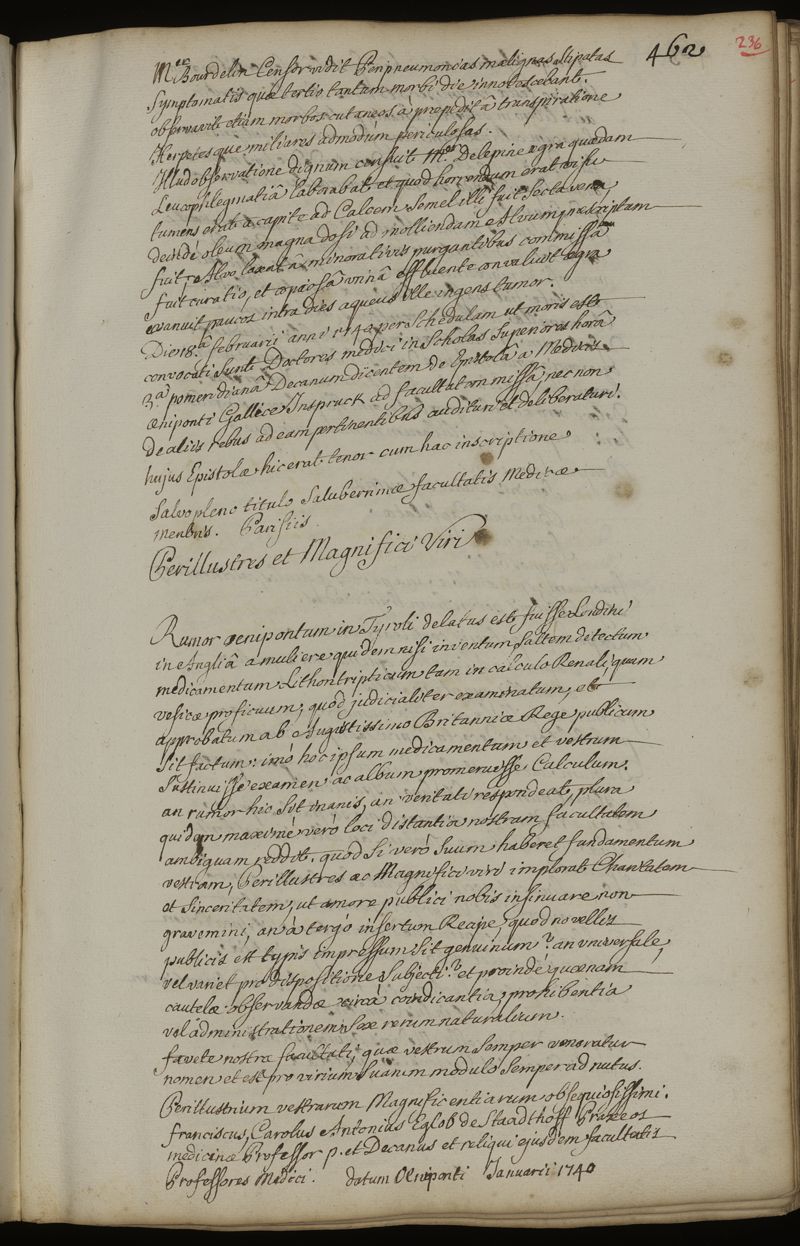 462
236
Mer Bourdelin Censor vidit Peripneumonicas malignas stipatas
symptomatis quae tertio tantum morbi die innotescebant.
observavit etiam morbos cutaneos à praepedita transpiratione
Herpetesque miliares admodum periculosas.
Illud observatione dignum censuit Mer Delepine aegra quaedam
Leucophlegmatiâ laborabat et quod horrendum erat visu
tumens erat a capite ad Calcem semel illi fuit secta vena,
deindé oleum magna dosi ad molliendam Alvum praescriptum
fuit; Alvo laxatâ minorativis purgantibus commissa
fuit curatio, et copiosâ urinâ effluente convaluit aegra
evanuit paucos intra dies aqueus ille ingens tumor.
Die 18.â februarii anni 1740 per Schedulam ut moris est
convocati sunt Doctores medici in Scholas Superiores horâ
3.â pomeridianâ Decanum dicentem de Epistola a Medicis
oeniponti Gallice Inspruck ad facultatem missâ, nec non
de aliis rebus ad eam pertinentibus audituri et deliberaturi.
hujus Epistolae hic erat tenor cum hac inscriptione
Salvo pleno titulo Saluberrimae facultatis Medicae
Membris. Parisiis
Perillustres et Magnifici Viri
Rumor oenipontum in Tyroli delatus est fuisse Londini
in Angliâ a muliere quidem nisi inventum, saltem detectum
medicamentum Lithontripticum tam in calculo Renali, quam
vesicae proficuum, quod judicialiter examinatum, et
approbatum ab Augustissimo Britanniae Rege publicum
sit factum: imó hoc ipsum medicamentum et vestrum
sustinuisse examen ac album promeruisse Calculum.
an rumor hic sit inanis, an veritati respondeat, plura
quidem maximé veró loci distantia nostram facultatem
ambiguam reddit. quod si veró suum haberet fundamentum
vestram, Perillustres ac Magnifici viri implorat Charitatem
et sinceritatem, ut amore publici nobis insinuare non
gravemini, an à tergó insertum Recipe, quod novellis
publicis est typis impressum sit genuinum? an universale,
vel variet pro dispositione Subjecti? et proindé quaenam
cautelae observandae circà coindicantia, prohibentia
vel administrationem sex rerum naturalium.
favete nostrae facultati, quae vestrum semper veneratur
nomen et est pro virium suarum modulo semper ad nutus.
Perillustrium vestrarum Magnificentiarum obsequiosissimi.
franciscus, Carolus Antonius Eglob de Staadthoff Praxeos
medicinae Professor p. et Decanus et reliqui ejusdem facultatis
Professores Medici. datum Oeniponti Januarii 1740